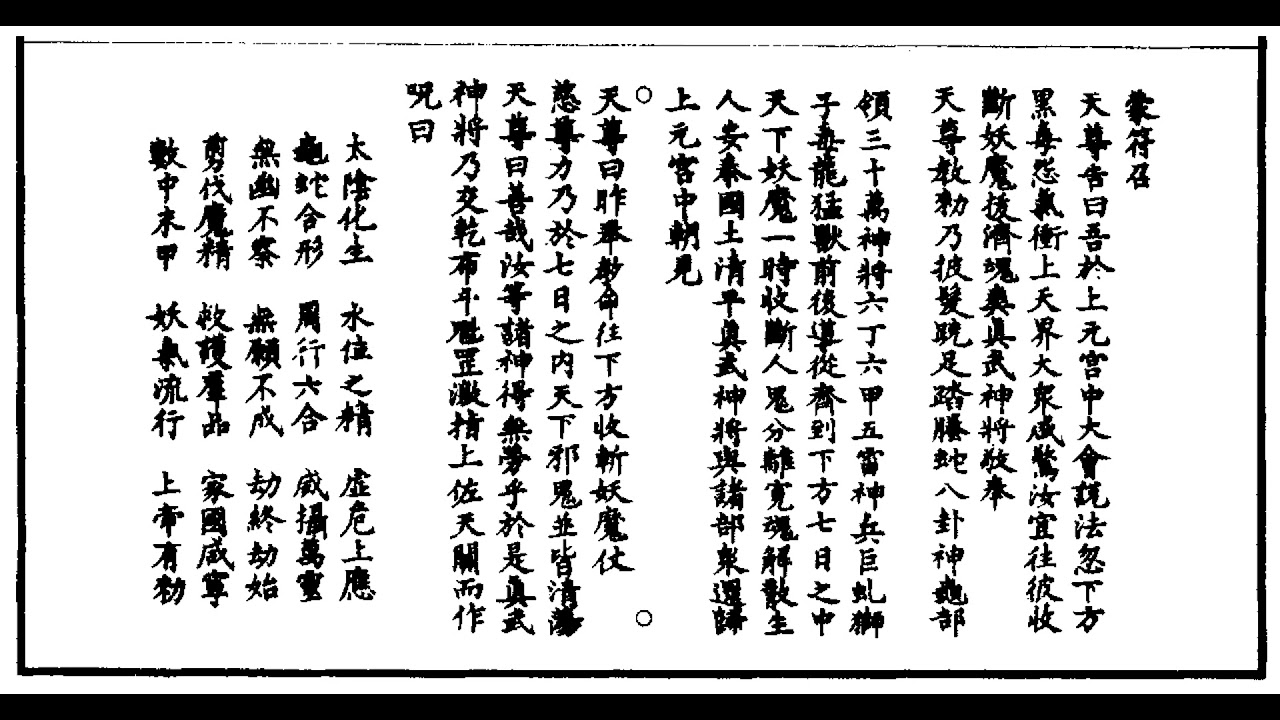 蒙符召
天尊告曰吾於上元宮中大會說法忽下方
黑毒怨氣衝上天界大衆咸驚汝宜往彼收
斷妖魔拔濟魂爽真武神將敬奉
天尊教勑乃披髮跣足踏騰蛇八卦神龜部
領三十萬神將六丁六甲五雷神兵巨虬獅
子毒龍猛獸前後導從齊到下方七日之中
天下妖魔一時收斷人鬼分離寃魂解散生
人安泰國土清平眞武神將與諸部衆還歸
上元宮中朝見
天尊曰昨奉勑命往下方收斬妖魔仗
慈尊力乃於七日之內天下邪鬼並皆清蕩
天尊曰善哉汝等諸神得無勞乎於是眞武
神將乃交乾布斗魁罡激指上佐天關而作
呪曰
太陰化生 水位之精 虛危上應
龜蛇合形 周行六合 威攝萬靈
無幽不察 無願不成 劫終劫始
剪伐魔精 救護羣品 家國咸寧
數中末甲 妖氣流行 上帝有勑